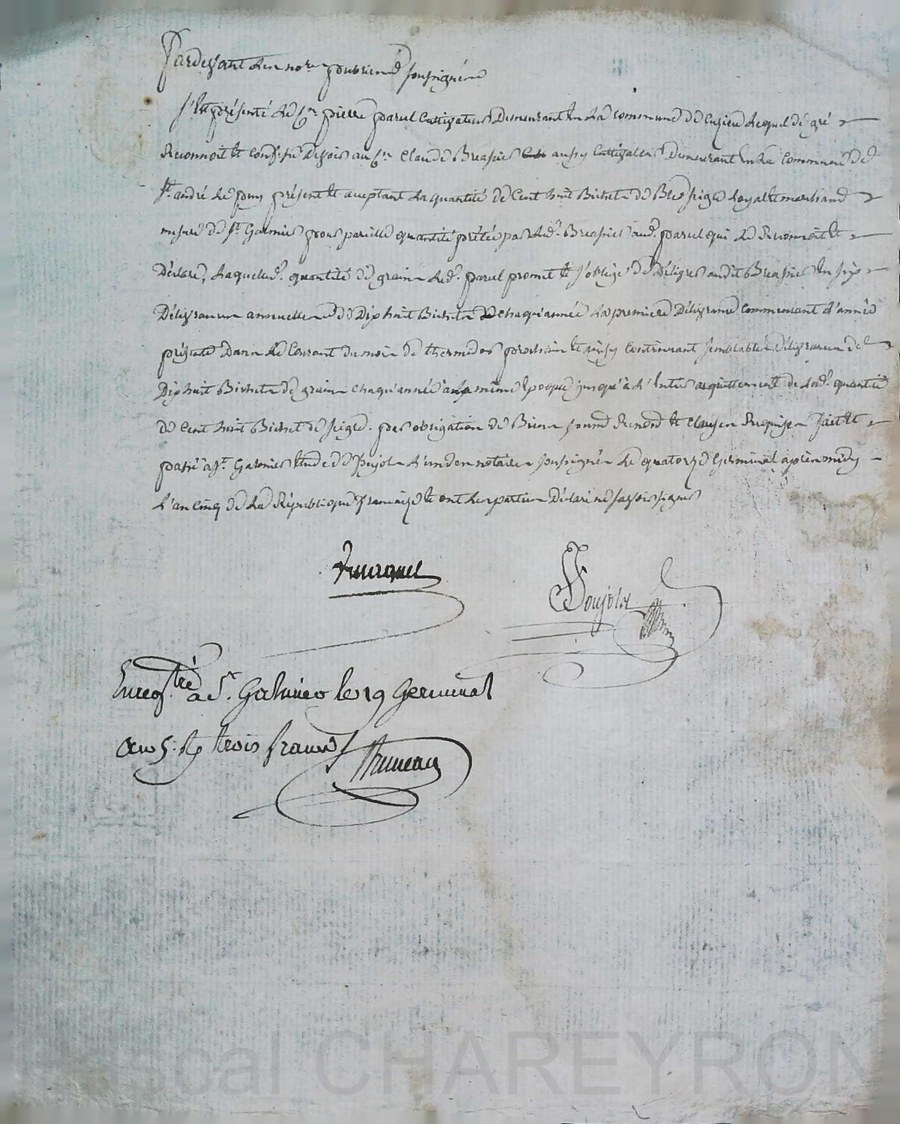 Pardevant les no.res publics d. soussignés
S'est présenté le C.en pierre parel Cultivateur Demeurant en La commune de Cuzieu lequel de gré
Reconnoit et Confesse Devoir au C.en Claude Breassier aussy Cultivateur Demeurant en La Commune de
S.t andré Le puy présent et acceptant La quantité de Cent huit Bichets de Bled seigle Loyal et marchand
mesure de S.t Galmier pour pareille quantité prêtée par led. Breassier aud. parel qui Le Reconnoit et
Déclare, Laquelle d. quantité de grain led. parel promet et s'oblige de Délivrer audit Breassier En six
Délivrances annuelles de Dix huit Bichets chaqu'année La première Délivrance Commencant L'année
présente Dans Le Courant du mois de thermidor prochain et ainsy Continuant semblables Délivrances de
Dix huit Bichets de grain chaqu'année a La même Epoque jusqu'à L'Entier acquittement de Lad. quantité
de Cent huit Bichets de seigle. par obligation de Biens soumis Renon et Clauses Requises fait et
passé a S.t Galmier Etude de Pujol L'un des notaires soussignés Le quatorze Germinal après midy
L'an cinq de La République française et ont Les parties Déclaré ne savoir signer
Enreg.tré a S.t Galmier le 19 Germinal
an 5. R. trois francs